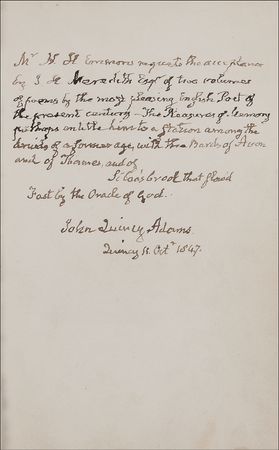 Mr H. H. Emmons requests the acceptance
by J. H. Meredith Esqr of two volumes
of poems by the most pleasing English Poet of
the present century — The Pleasures of Memory
perhaps entitle him to a Station among the
of a former age, with the Bards of Avon
and of Thames, and of
Siloa's brook that flowed
Fast by the Oracle of God.
John Quincy Adams.
Quincy 11. Octr 1847.